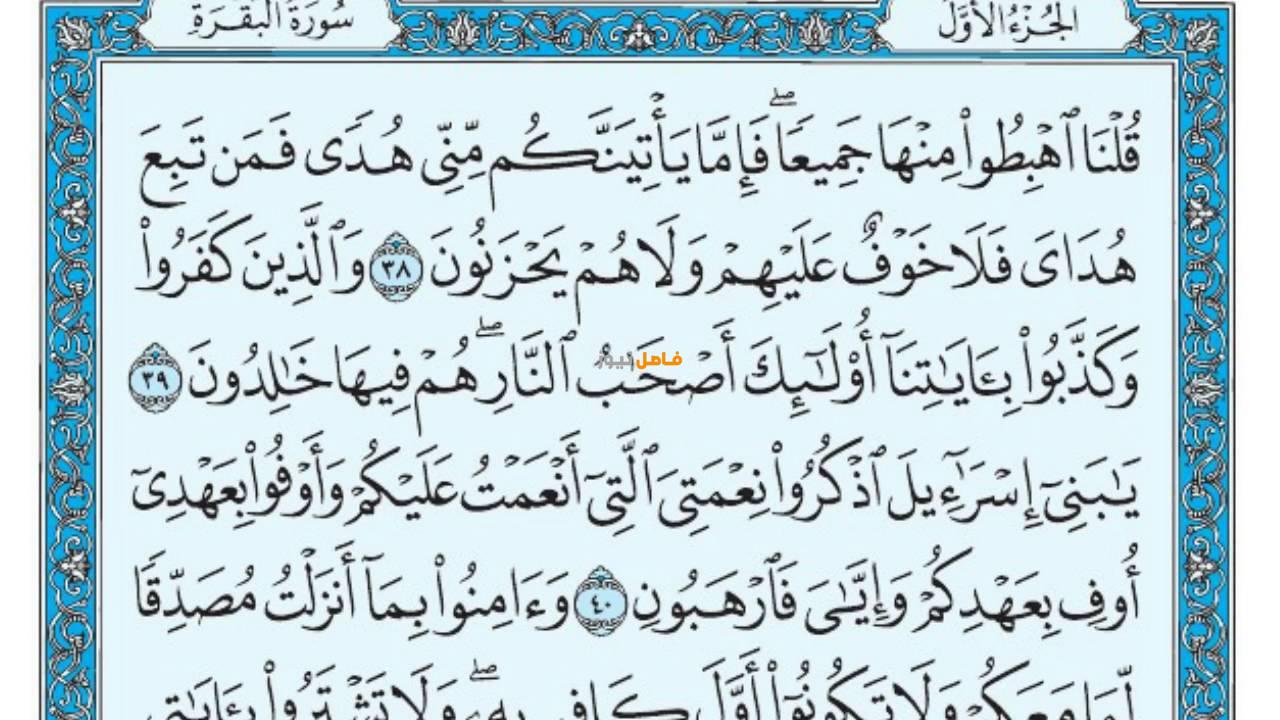 الجُزْءُ الأَوَّلُ
سُورَةُ البَقَرَةِ
قُلْنَا ٱهْبِطُوا۟ مِنْهَا جَمِيعًۭا ۖ فَإِمَّا يَأْتِيَنَّكُم مِّنِّى هُدًۭى فَمَن تَبِعَ
هُدَاىَ فَلَا خَوْفٌ عَلَيْهِمْ وَلَا هُمْ يَحْزَنُونَ ٣٨ وَٱلَّذِينَ كَفَرُوا۟
وَكَذَّبُوا۟ بِـَٔايَـٰتِنَآ أُو۟لَـٰٓئِكَ أَصْحَـٰبُ ٱلنَّارِ ۖ هُمْ فِيهَا خَـٰلِدُونَ ٣٩
فاصل نيوز
يَـٰبَنِىٓ إِسْرَٰٓءِيلَ ٱذْكُرُوا۟ نِعْمَتِىَ ٱلَّتِىٓ أَنْعَمْتُ عَلَيْكُمْ وَأَوْفُوا۟ بِعَهْدِىٓ
أُوفِ بِعَهْدِكُمْ وَإِيَّـٰىَ فَٱرْهَبُونِ ٤٠ وَءَامِنُوا۟ بِمَآ أَنزَلْتُ مُصَدِّقًۭا
لِّمَا مَعَكُمْ وَلَا تَكُونُوٓا۟ أَوَّلَ كَافِرٍۭ بِهِۦ ۖ وَلَا تَشْتَرُوا۟ بِـَٔايَـٰتِى